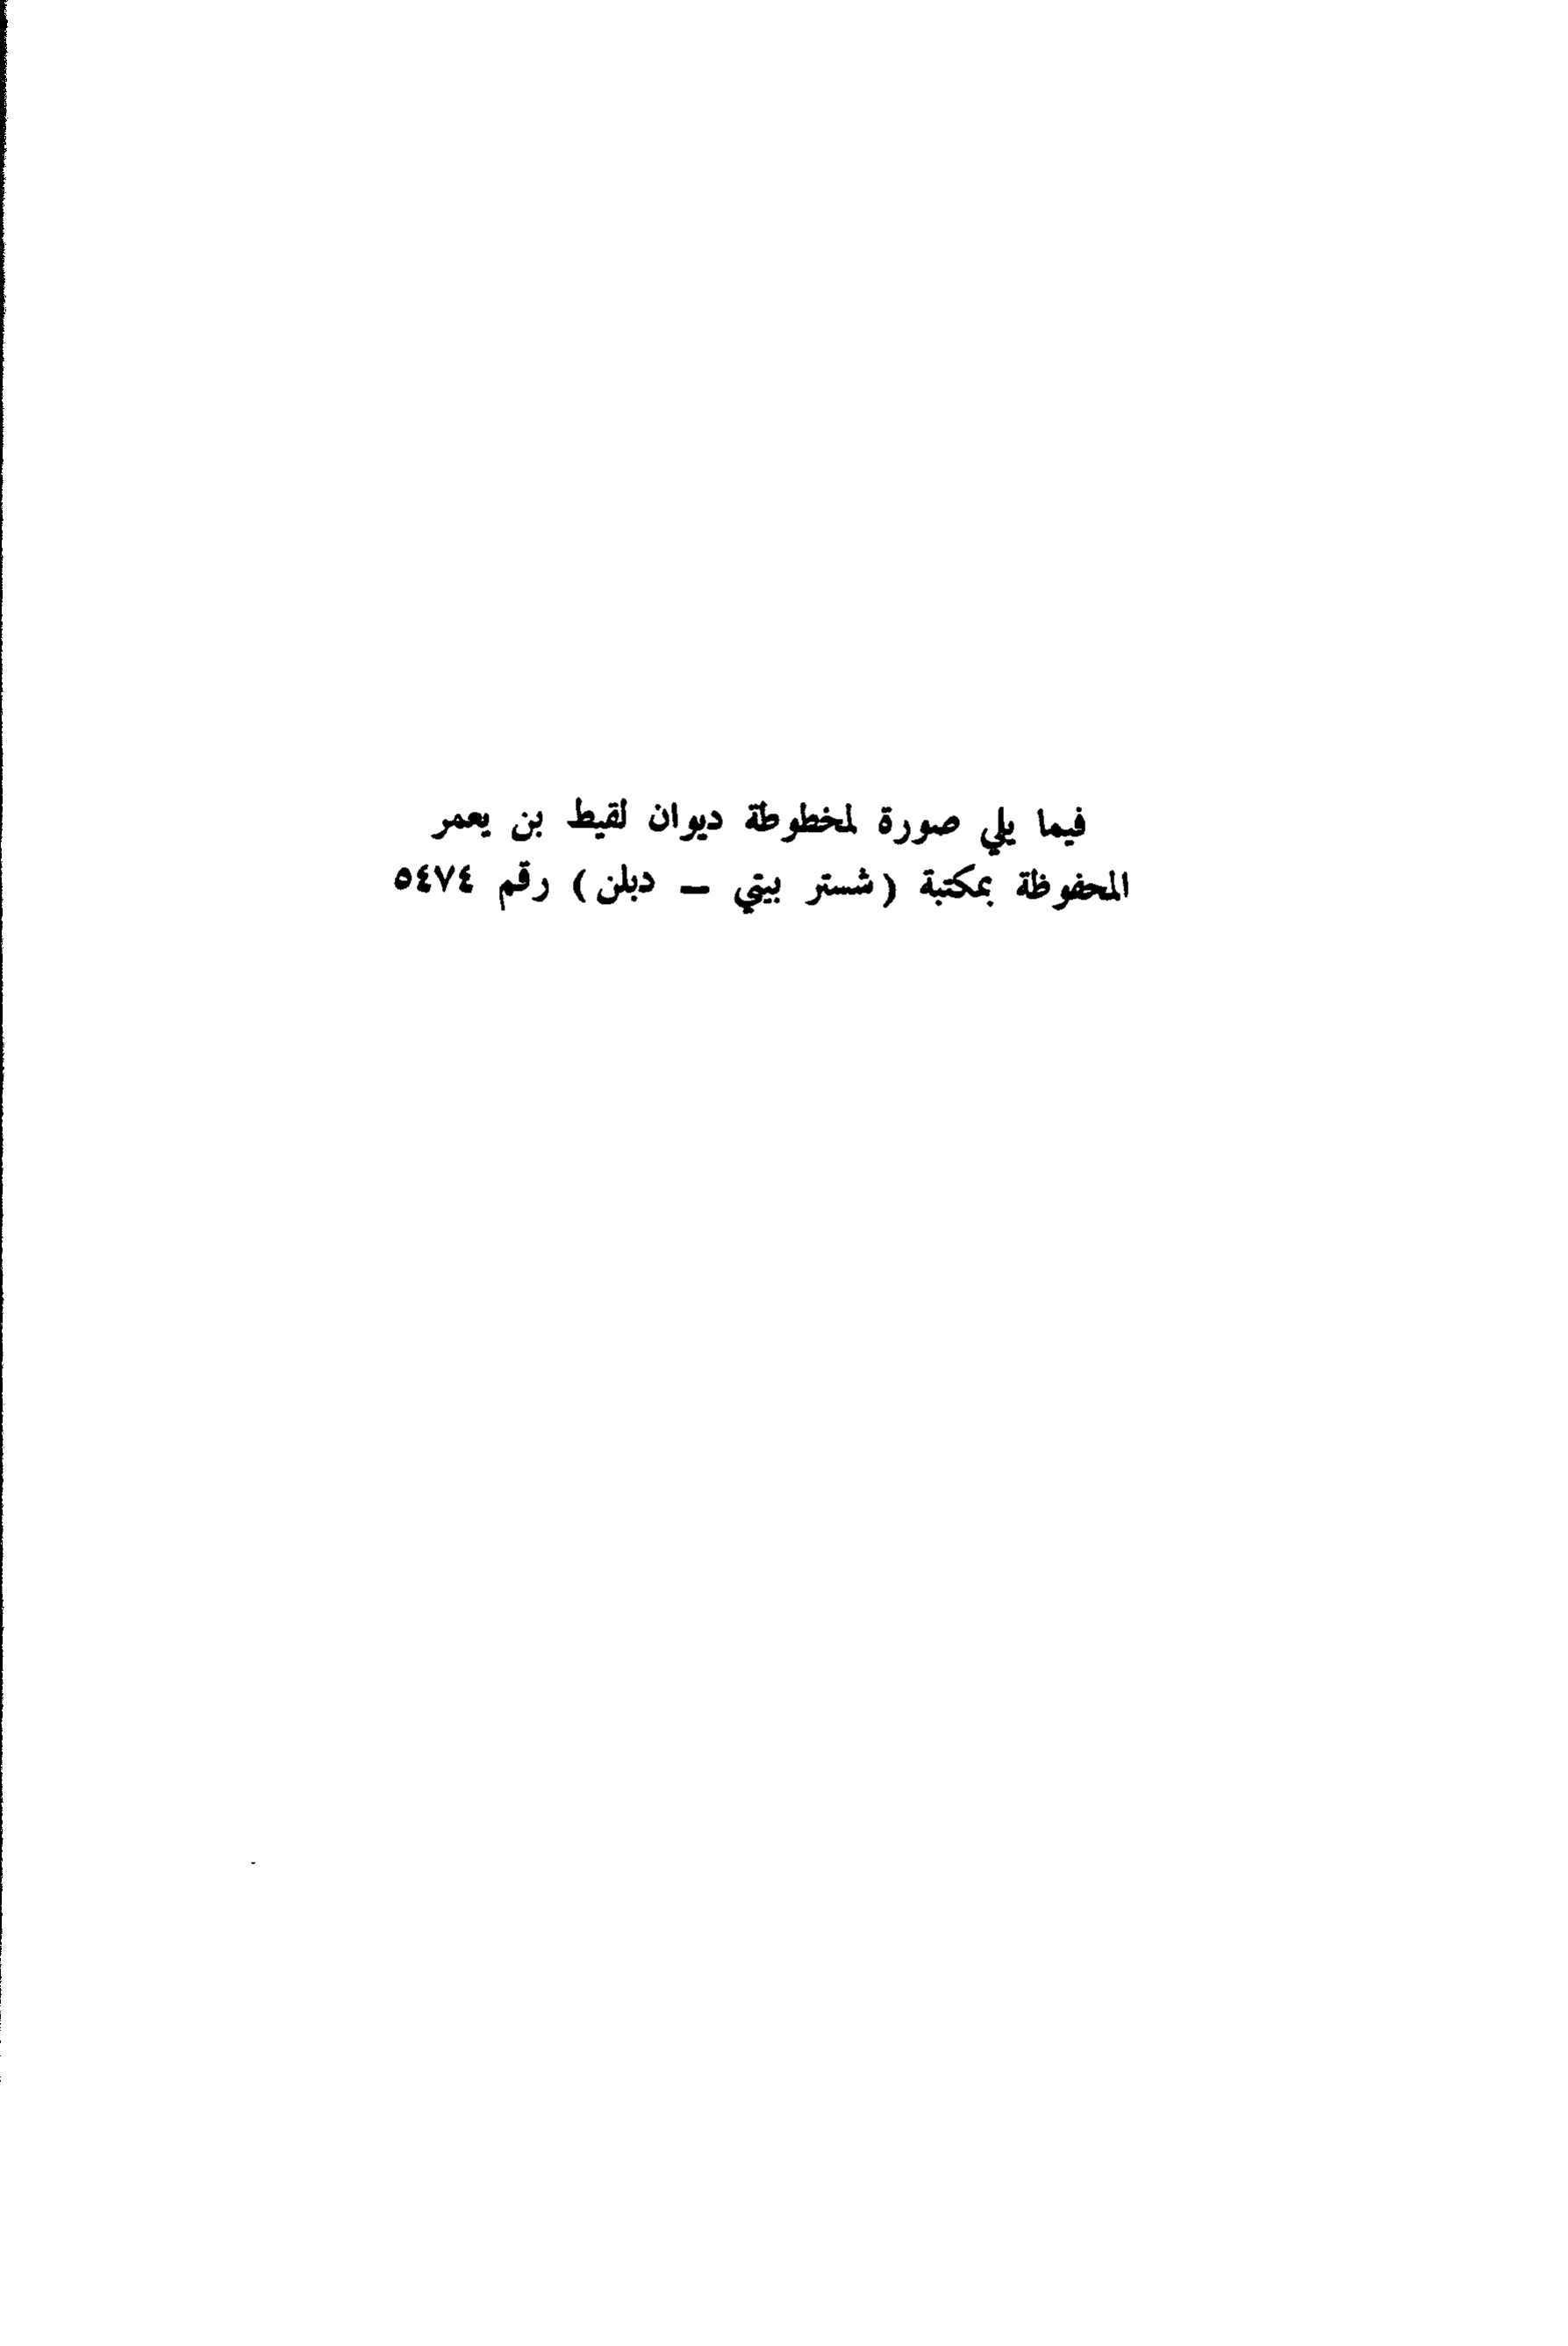 فيما يلي صورة لمخطوطة ديوان لقيط بن يعمر
المحفوظة بمكتبة (شستر بيتي — دبلن) رقم ٥٤٧٤